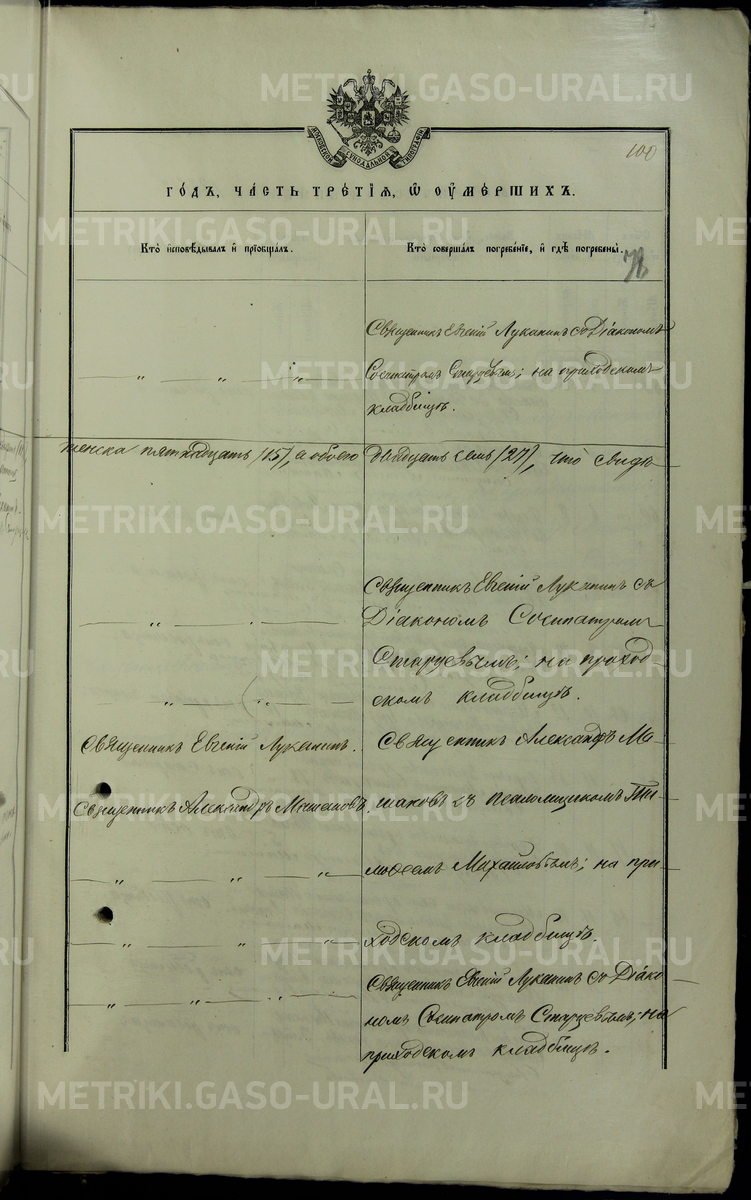 МОСКОВСКОЙ СУНОДАЛЬНОЙ ТИПОГРАФІИ
100
ГОДЪ, ЧАСТЬ ТРЕТІЯ, Ѿ ОУМЕРШИХЪ.
Кто исповѣдывалъ и пріобщалъ.
Кто совершалъ погребеніе, и гдѣ погребены.
Священникъ Евгеній Луканинъ съ Діакономъ
„ „ „
Сосипатромъ Старцевымъ; на приходскомъ
кладбищѣ.
женска пятнадцать /15/, а обоего двадцать семь /27/, что свидѣ-
Священникъ Евгеній Луканинъ съ
„ „
Діакономъ Сосипатромъ
Старцевымъ; на приход-
„ „
скомъ кладбищѣ.
Священникъ Евгеній Луканинъ.
Священникъ Александръ Ма-
Священникъ Александръ
шаковъ съ псаломщикомъ Ти-
„ „ „
мофеемъ Михайловымъ; на при-
„ „ „
ходскомъ кладбищѣ.
Священникъ Евгеній Луканинъ съ Діако-
„ „ „
номъ Сосипатромъ Старцевымъ; на
приходскомъ кладбищѣ.
METRIKI.GASO-URAL.RU